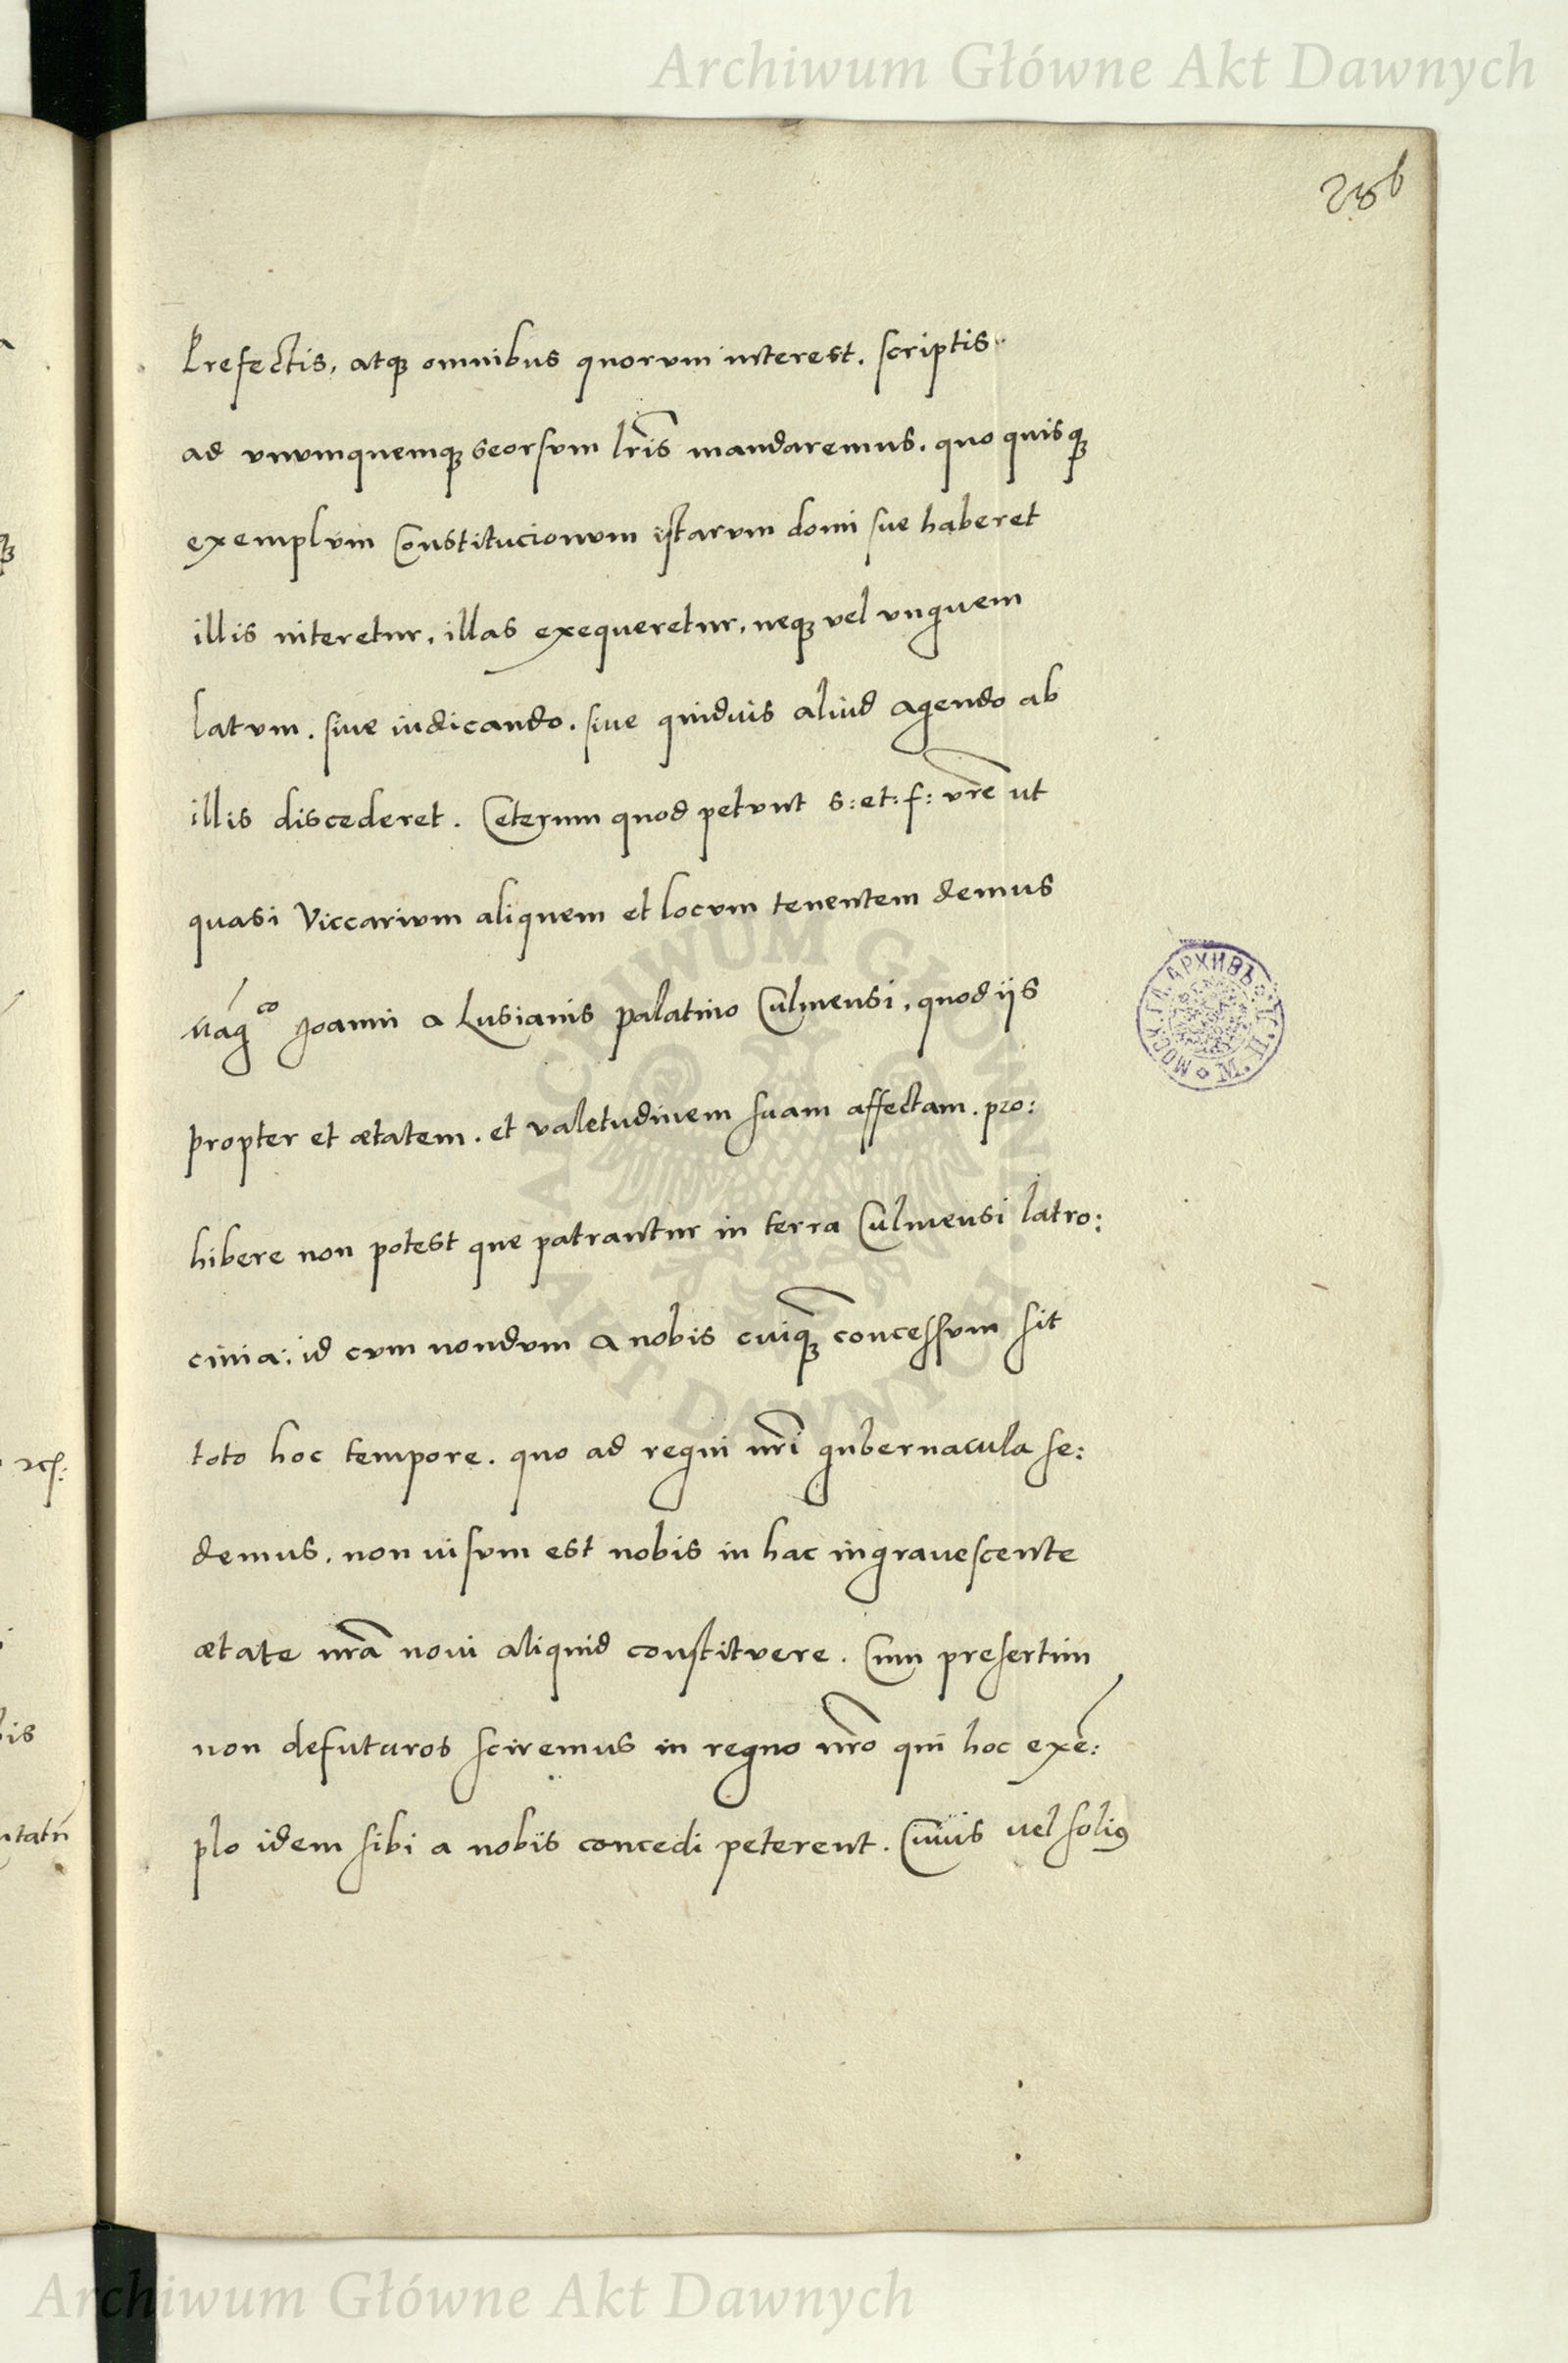 Archiwum Główne Akt Dawnych
Prefectis, atqꝫ omnibus quorum interest. scriptis
ad vnumquemqꝫ seorsum lr̃is mandaremus. quo quisqꝫ
exemplum Constitucionum istarum domi sue haberet
illis niteretur, illas exequeretur, neqꝫ vel vnguem
latum. siue iudicando. siue quiduis aliud agendo ab
illis discederet. Ceterum quod petunt s: et: f: vr̃e ut
quasi Viccarium aliquem et locum tenentem demus
Mag^co Joanni a Lusianis palatino Culmensi, quod iis
propter et ætatem. et valetudinem suam affectam. pro:
hibere non potest que patrantur in terra Culmensi latro:
cinia: id cum nondum a nobis cuiqꝫ concessum sit
toto hoc tempore. quo ad regni nr̃i gubernacula se:
demus. non uisum est nobis in hac ingrauescente
ætate nr̃a noui aliquid constituere. Cum presertim
non defuturos sciremus in regno nr̃o qui hoc exē:
plo idem sibi a nobis concedi peterent. Cuius vel soliꝰ
ARCHIWUM GŁÓWNE AKT DAWNYCH
Archiwum Główne Akt Dawnych